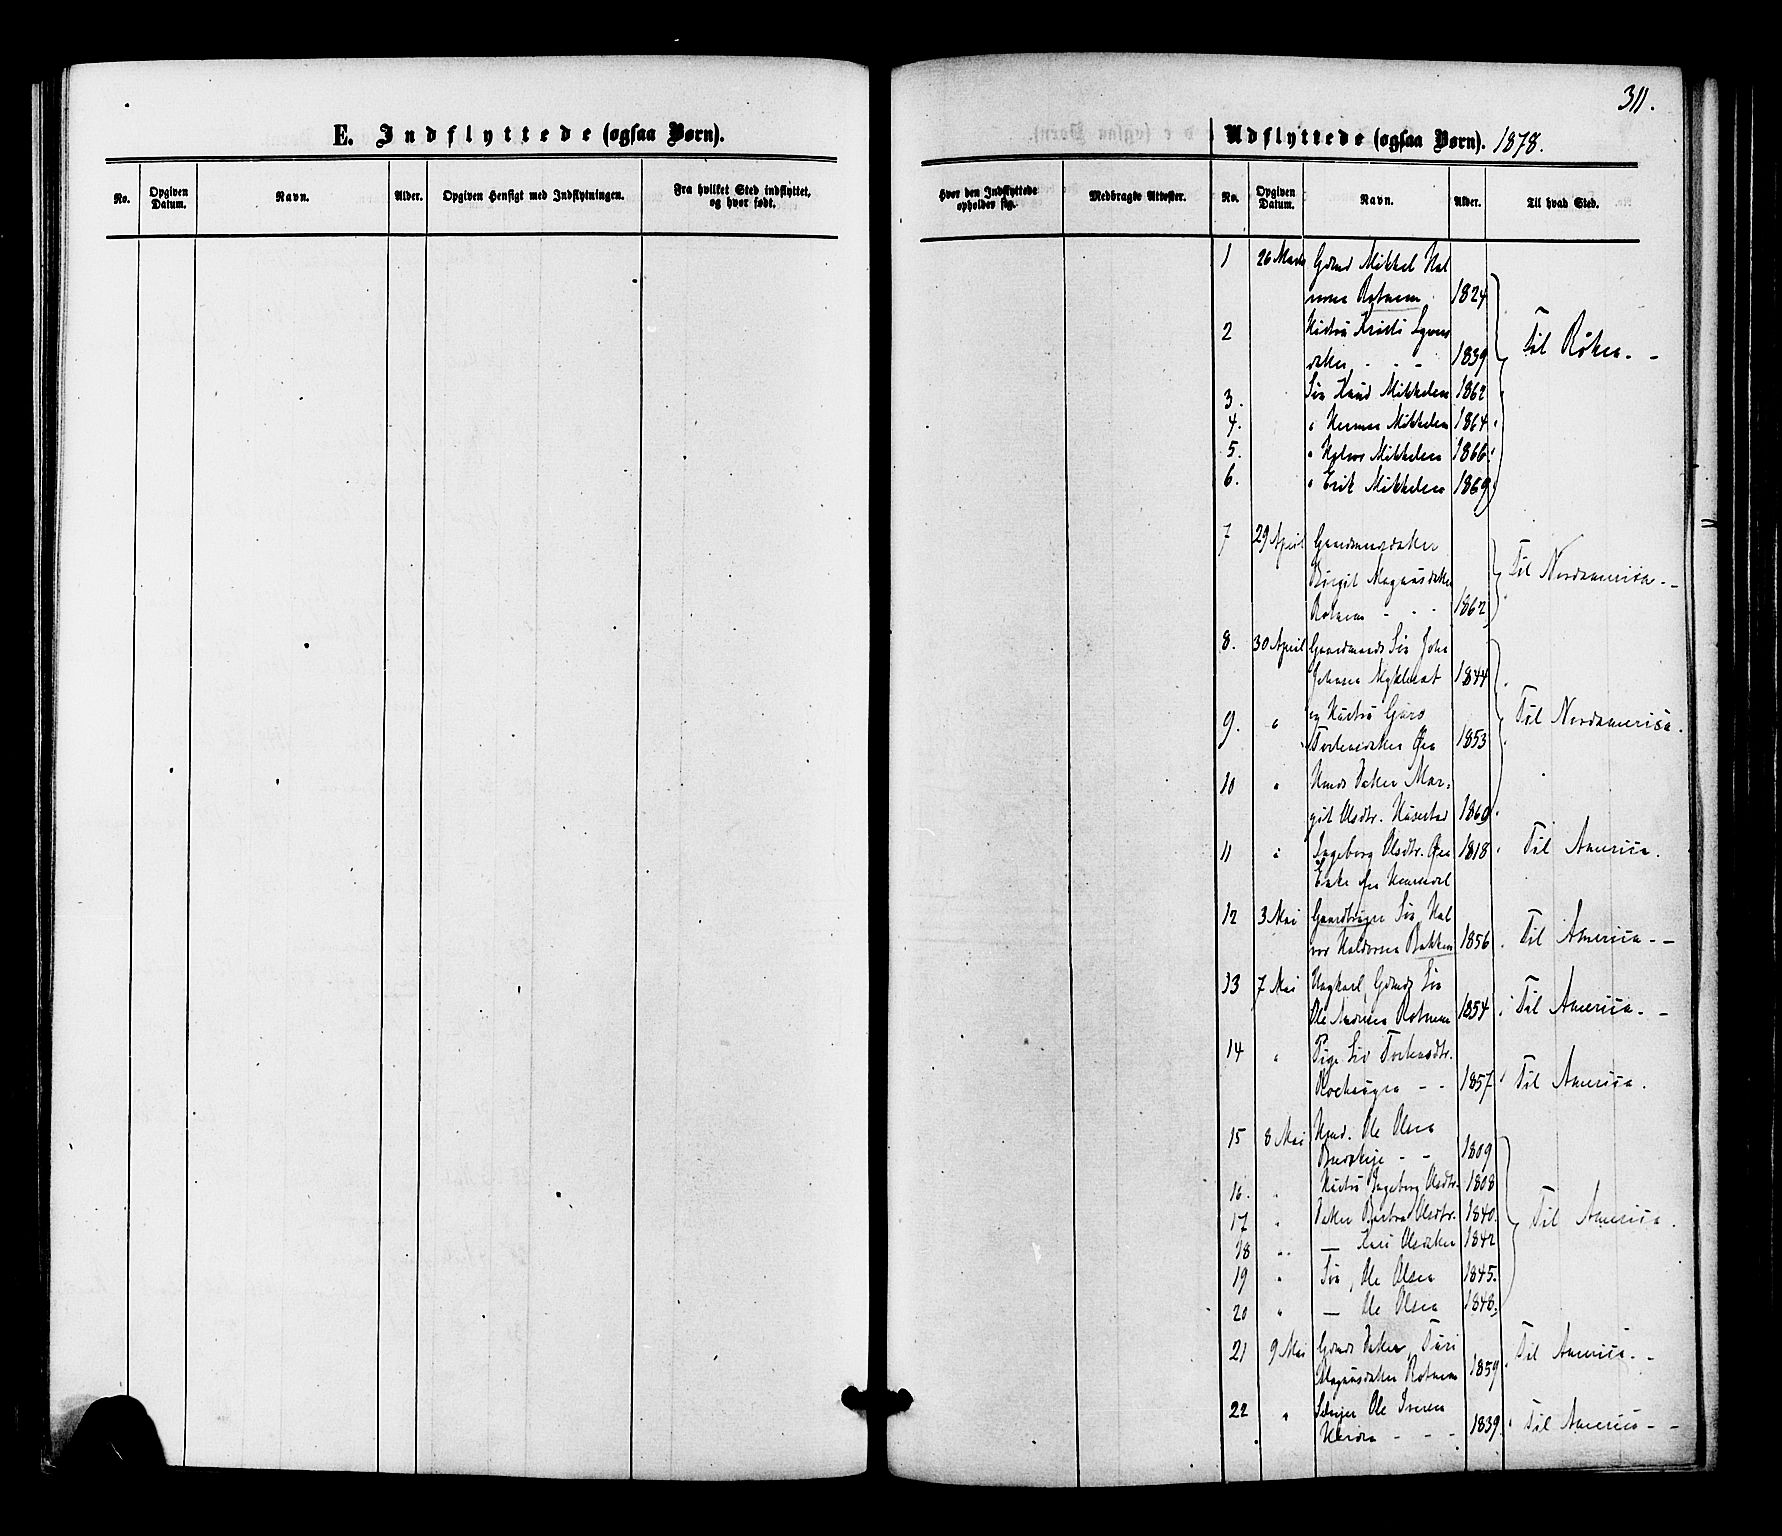 311.
E. Indflyttede (ogsaa Børn).
No.
Opgiven Datum.
Navn.
Alder.
Opgiven Hensigt med Indflytningen.
Fra hvilket Sted indflyttet, og hvor født.
Hvor den Indflyttede opholder sig.
Medbragte Attester.
Udflyttede (ogsaa Børn). 1878.
No.
Opgiven Datum.
Navn.
Alder.
Til hvad Sted.
1 26 Marts Gdmd Mikkel Hal
Rotneim 1824
2 Hustru Kristi
datter - - - 1839 Til Røken. -
3. Søn Knud Mikkelsen 1862
4. " Herman Mikkelsen 1864.
5. " Halvor Mikkelsen 1866.
6. " Erik Mikkelsen 1869
7 29 April Gaardmansdatter
Birgit Magnusdatter Til Nordamerica. -
Rotneim - - - 1862
8. 30 April Gaardmands Søn John
Johnsen 1844
9. " og Hustru Guro Til Nordamerica.
1853
10 " Datter Mar-
git Olsdtr. 1860
11 " Ingeborg Olsdtr. 1818 Til America.
Enke fra Hemsedal
12 3 Mai Søn Hal
vor Halvorsen Bakken 1856 Til America. - -
13 7 Mai Ungkarl, Gdmds Søn
Ole Rotneim 1854 Til America. - -
14 " Pige Siv
- - 1857 Til America.
15 8 Mai Ole Olsen
- - 1809
16. " Hustru Ingeborg Olsdtr. 1808
17 " Datter Olsdtr. 1840. Til America.
18 " — Kari Olsdatter 1842
19 " Søn, Ole Olsen 1845.
20 " — Ole Olsen 1848.
21 9 Mai Gdmds Datter, Turi Til America. -
Magnusdatter Rotneim 1859
22 " Ole Iversen
- - - 1839. Til America - -